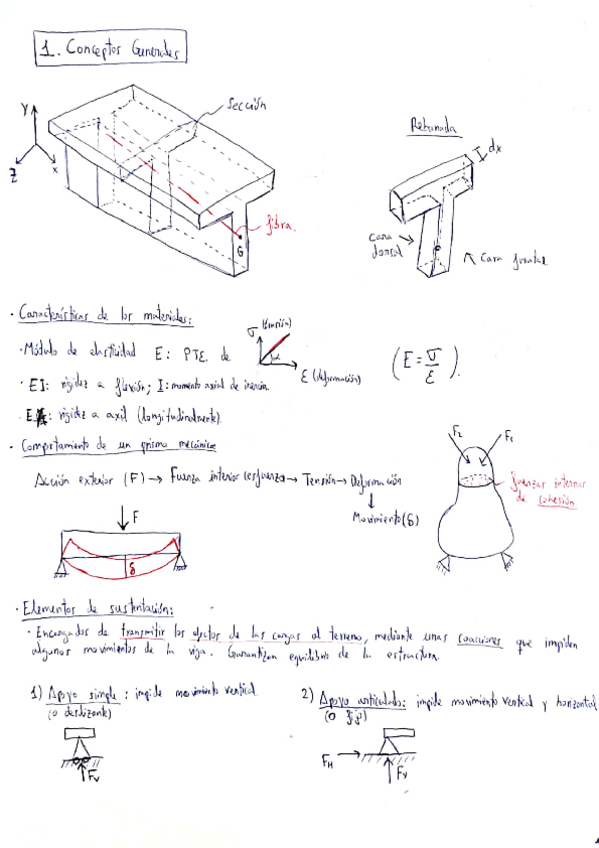 1. Conceptos Generales
Sección
Y
Z
x
fibra.
G
Rebanada
dx
cara dorsal
G
Cara frontal
· Características de los materiales:
· Módulo de elasticidad E: PTE. de
σ (tensión)
α
ε (deformación)
(E = σ/ε).
· EI: rigidez a flexión; I: momento axial de inercia.
· EA: rigidez a axil (longitudinalmente).
· Comportamiento de un prisma mecánico
Acción exterior (F) → Fuerza interior (esfuerzo) → Tensión → Deformación
↓
Movimiento (δ)
F
δ
F2
F1
fuerzas internas
de cohesión
· Elementos de sustentación:
· Encargados de transmitir los efectos de las cargas al terreno, mediante unas coacciones que impiden
algunos movimientos de la viga. Garantizan equilibrio de la estructura.
1) Apoyo simple: impide movimiento vertical.
(o deslizante)
Fv
2) Apoyo articulado: impide movimiento vertical y horizontal
(o fijo)
FH
Fv